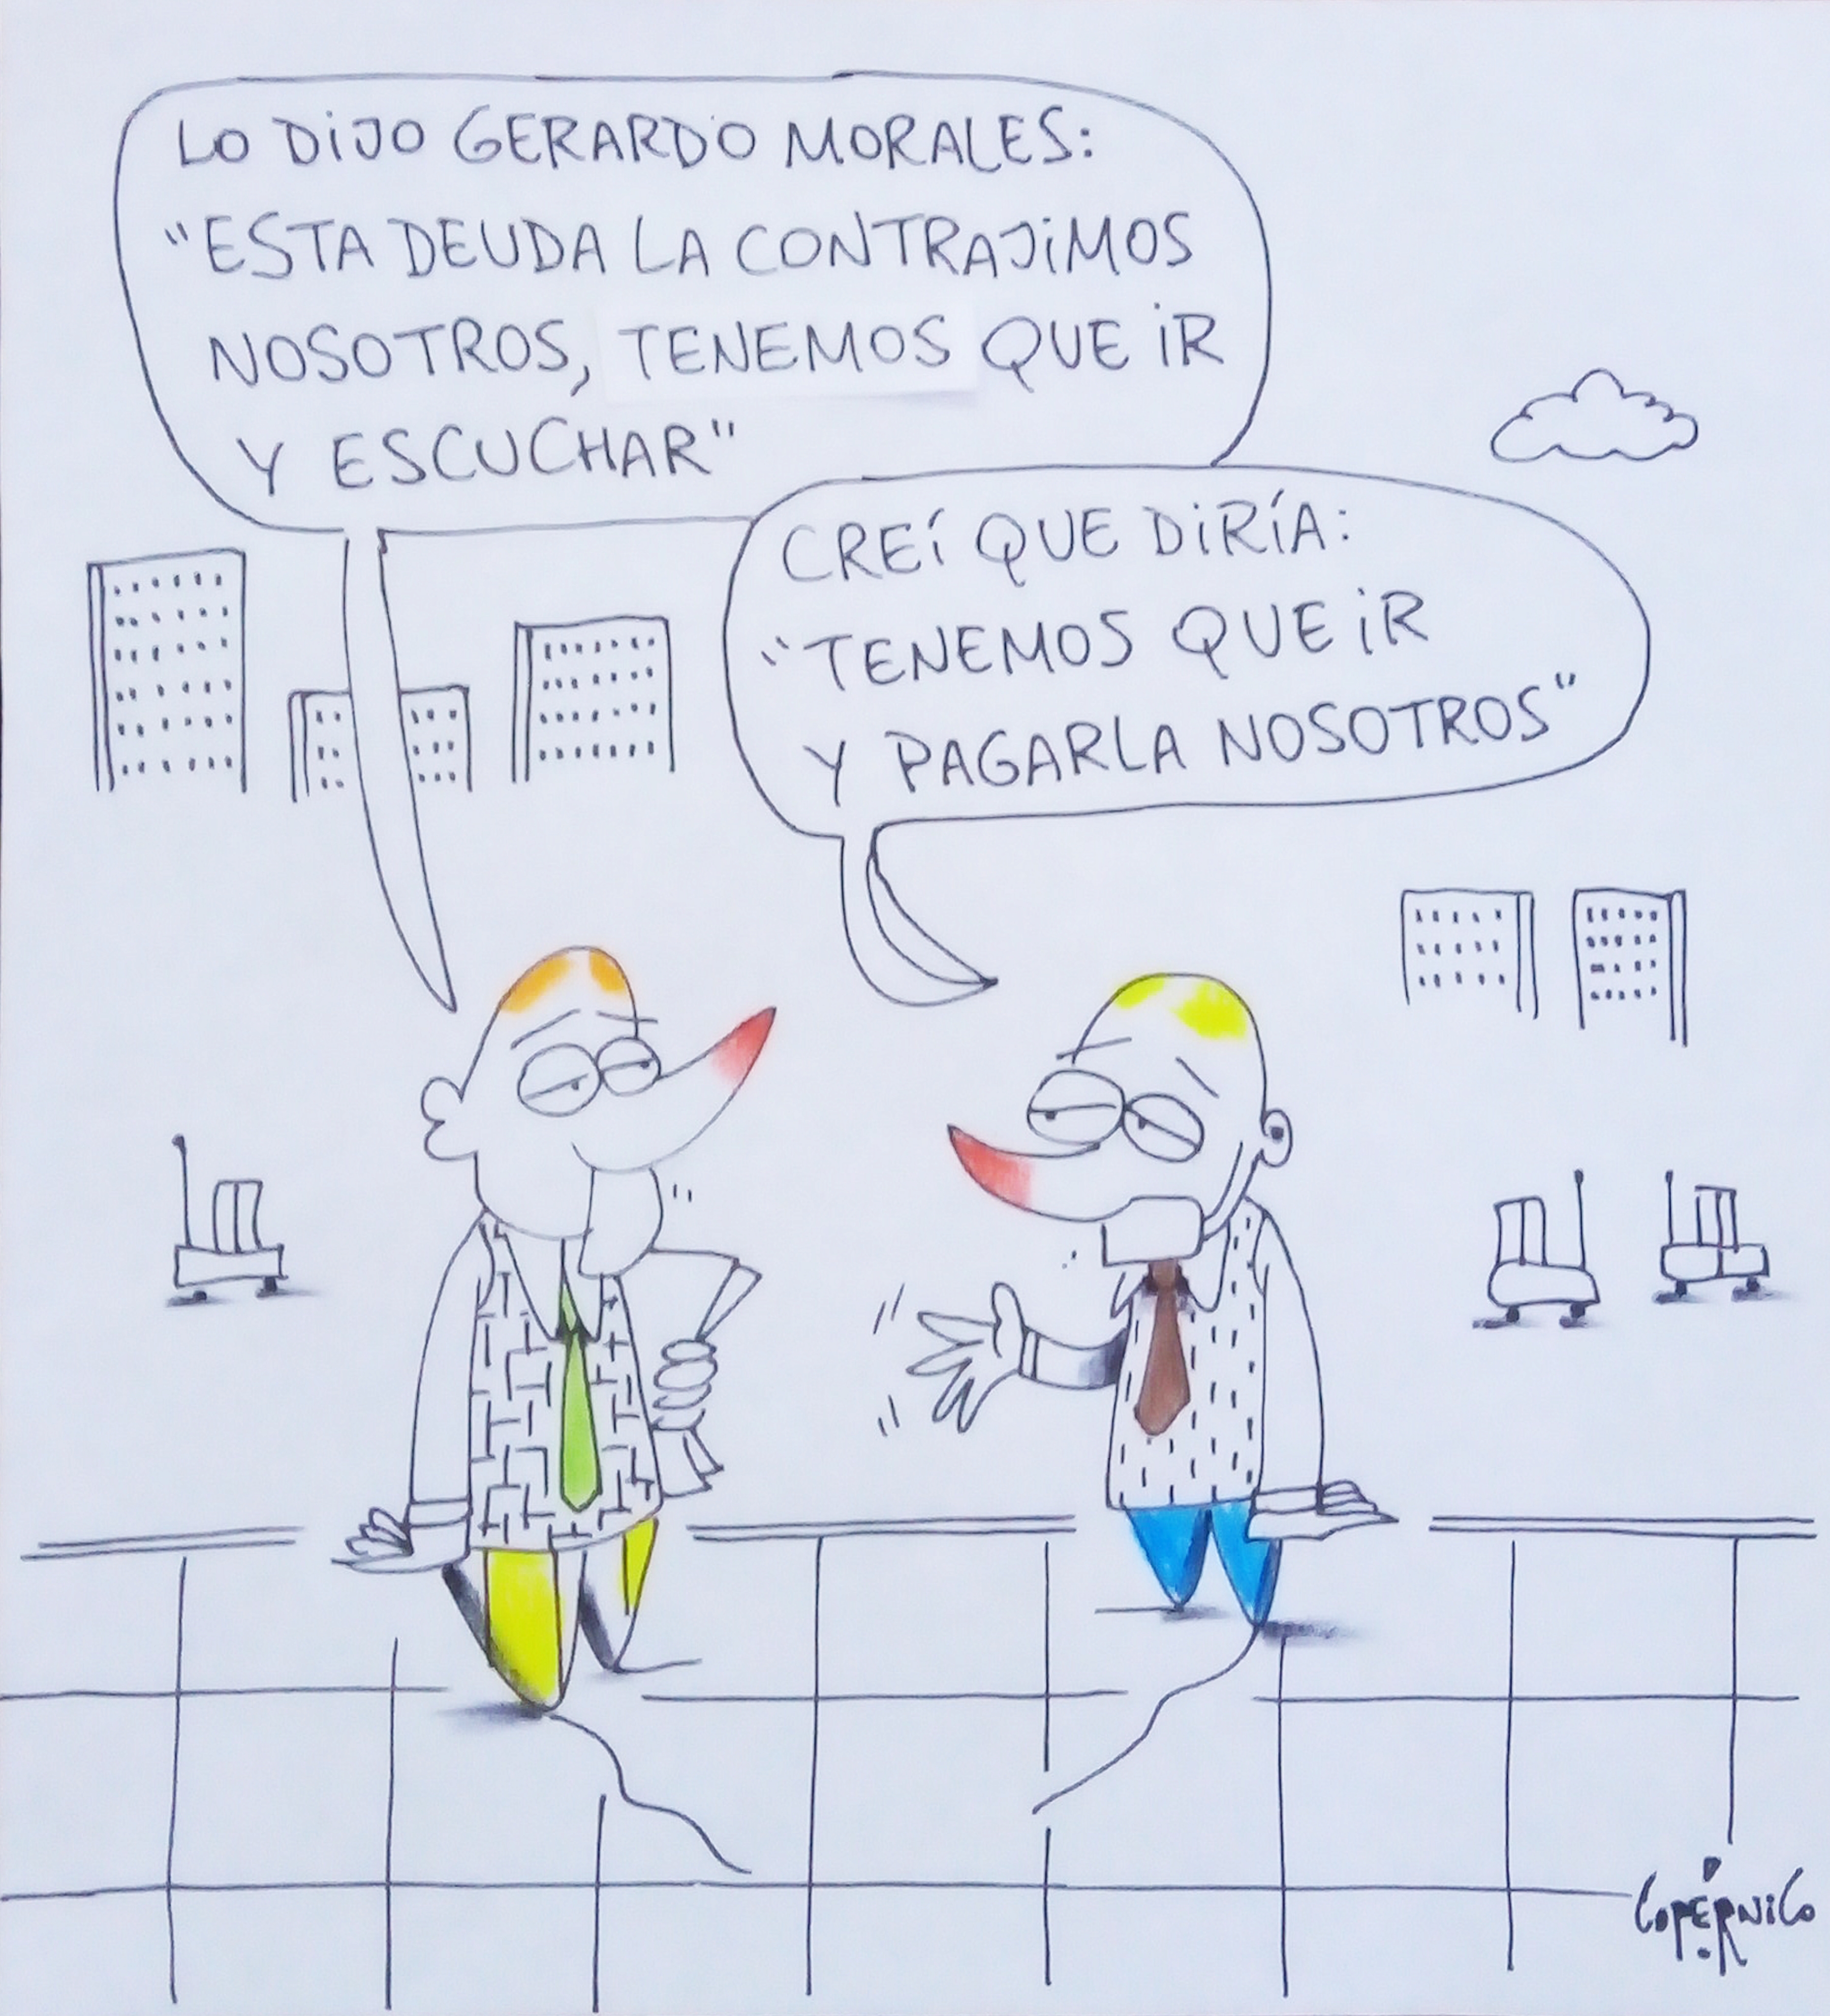 LO DIJO GERARDO MORALES:
"ESTA DEUDA LA CONTRAJIMOS
NOSOTROS, TENEMOS QUE IR
Y ESCUCHAR"
CREÍ QUE DIRÍA:
"TENEMOS QUE IR
Y PAGARLA NOSOTROS"
COPÉRNICO